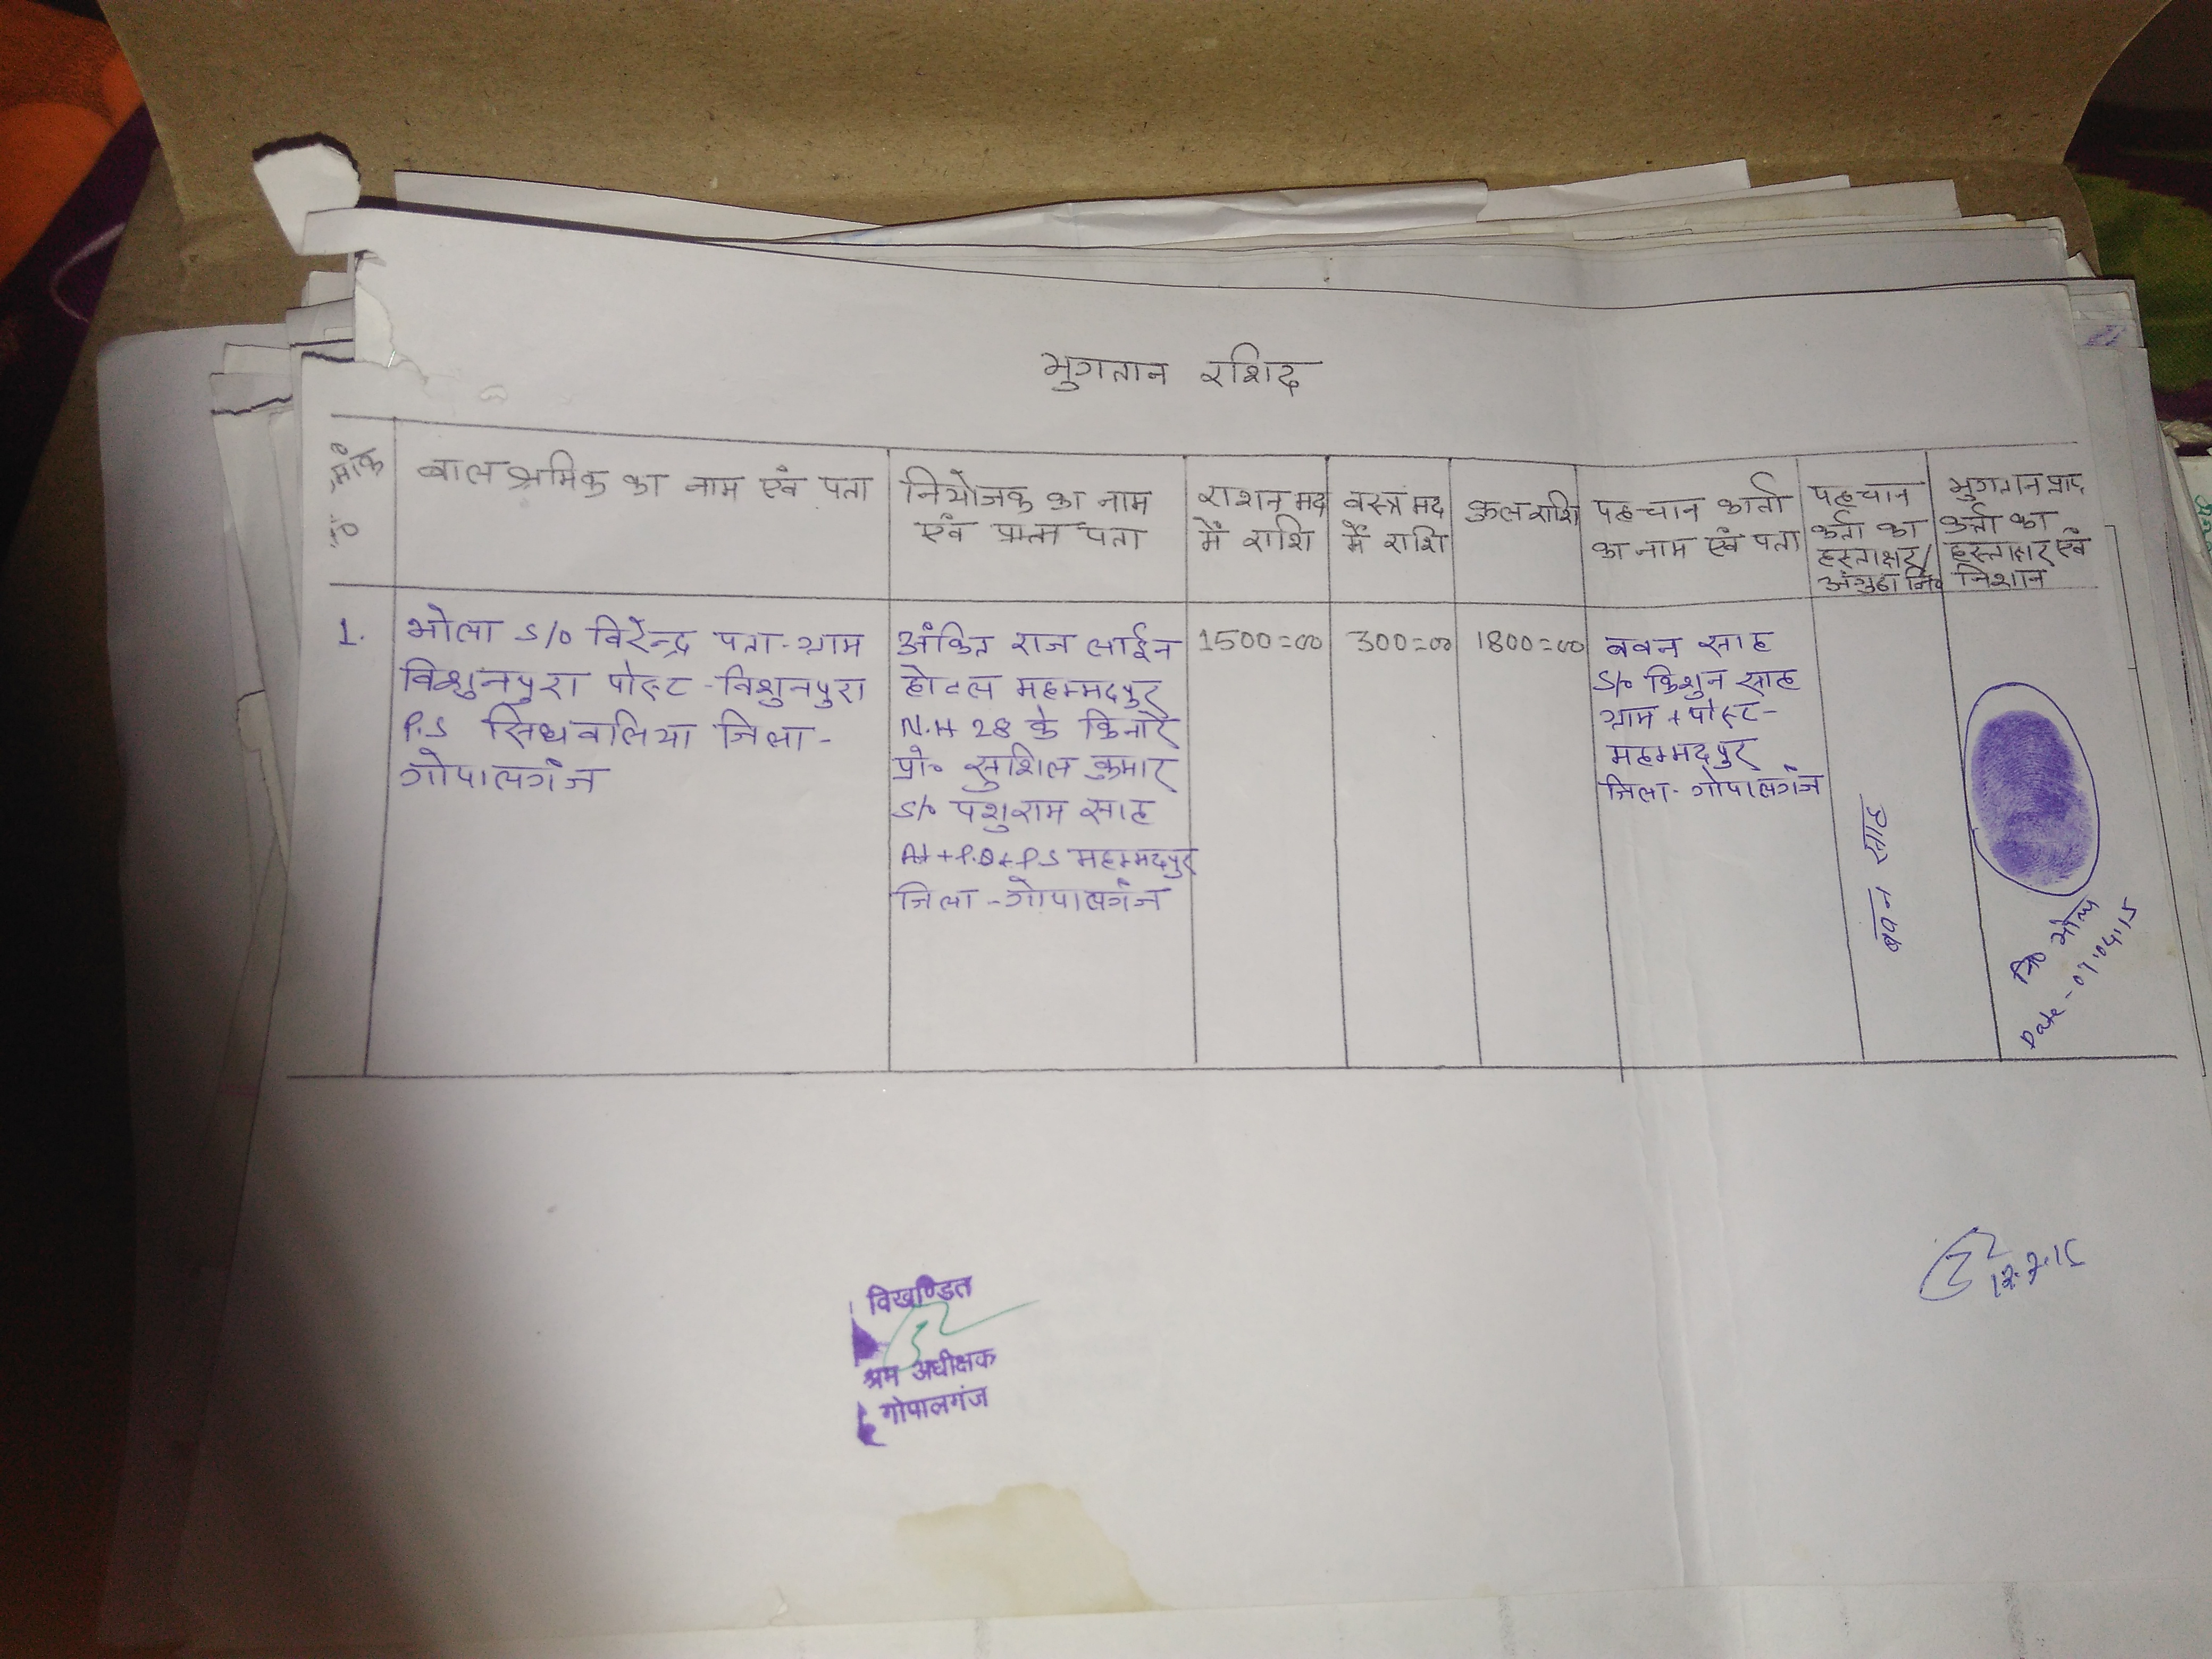 भुगतान रशिद
क्रमांक
बाल श्रमिक का नाम एवं पता
नियोजक का नाम
एवं प्राप्त पता
राशन मद
में राशि
वस्त्र मद
में राशि
कुल राशि
पहचान कर्ता
का नाम एवं पता
पहचान
कर्ता का
हस्ताक्षर/
अंगुठा नि०
भुगतान प्राप्त
कर्ता का
हस्ताक्षर एवं
निशान
1.
भोला S/o विरेन्द्र पता-ग्राम
विशुनपुरा पोस्ट-विशुनपुरा
P.S सिधवलिया जिला-
गोपालगंज
अंकित राज लाईन
होटल महम्मदपुर
N.H 28 के किनारे
प्रो० सुशिल कुमार
S/o पशुराम साह
At+P.O+P.S महम्मदपुर
जिला-गोपालगंज
1500=00
300=00
1800=00
बबन साह
S/o किशुन साह
ग्राम + पोस्ट-
महम्मदपुर
जिला-गोपालगंज
बबन साह
नि० भोला
Date-07.04.15
विखण्डित
श्रम अधीक्षक
गोपालगंज